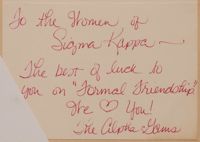 To the Women of
Sigma Kappa ~
The best of luck to
you on "Formal Friendship"
We ♡ You!
The Alpha Gams